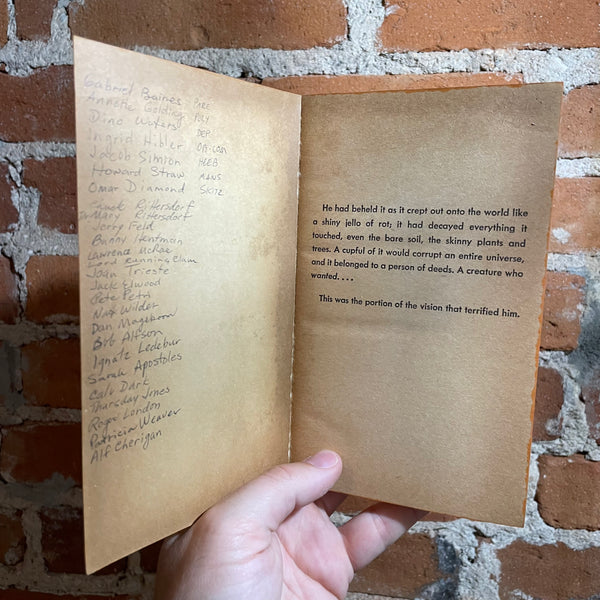 Gabriel Baines PARE
Annette Golding POLY
Dino Waters DEP
Ingrid Hibler OB-COM
Jacob Simion HEEB
Howard Straw MANS
Omar Diamond SKITZ
Chuck Rittersdorf
Dr Mary Rittersdorf
Jerry Feld
Bunny Hentman
Lawrence McRae
Lord Running Clam
Joan Trieste
Jack Elwood
Pete Petri
Nat Wilder
Dan Mageboom
Bob Alfson
Ignatz Ledebur
Sarah Apostoles
Calv Dark
Thursday Jones
Roger London
Patricia Weaver
Alf Cherigan
He had beheld it as it crept out onto the world like
a shiny jello of rot; it had decayed everything it
touched, even the bare soil, the skinny plants and
trees. A cupful of it would corrupt an entire universe,
and it belonged to a person of deeds. A creature who
wanted. . . .
This was the portion of the vision that terrified him.